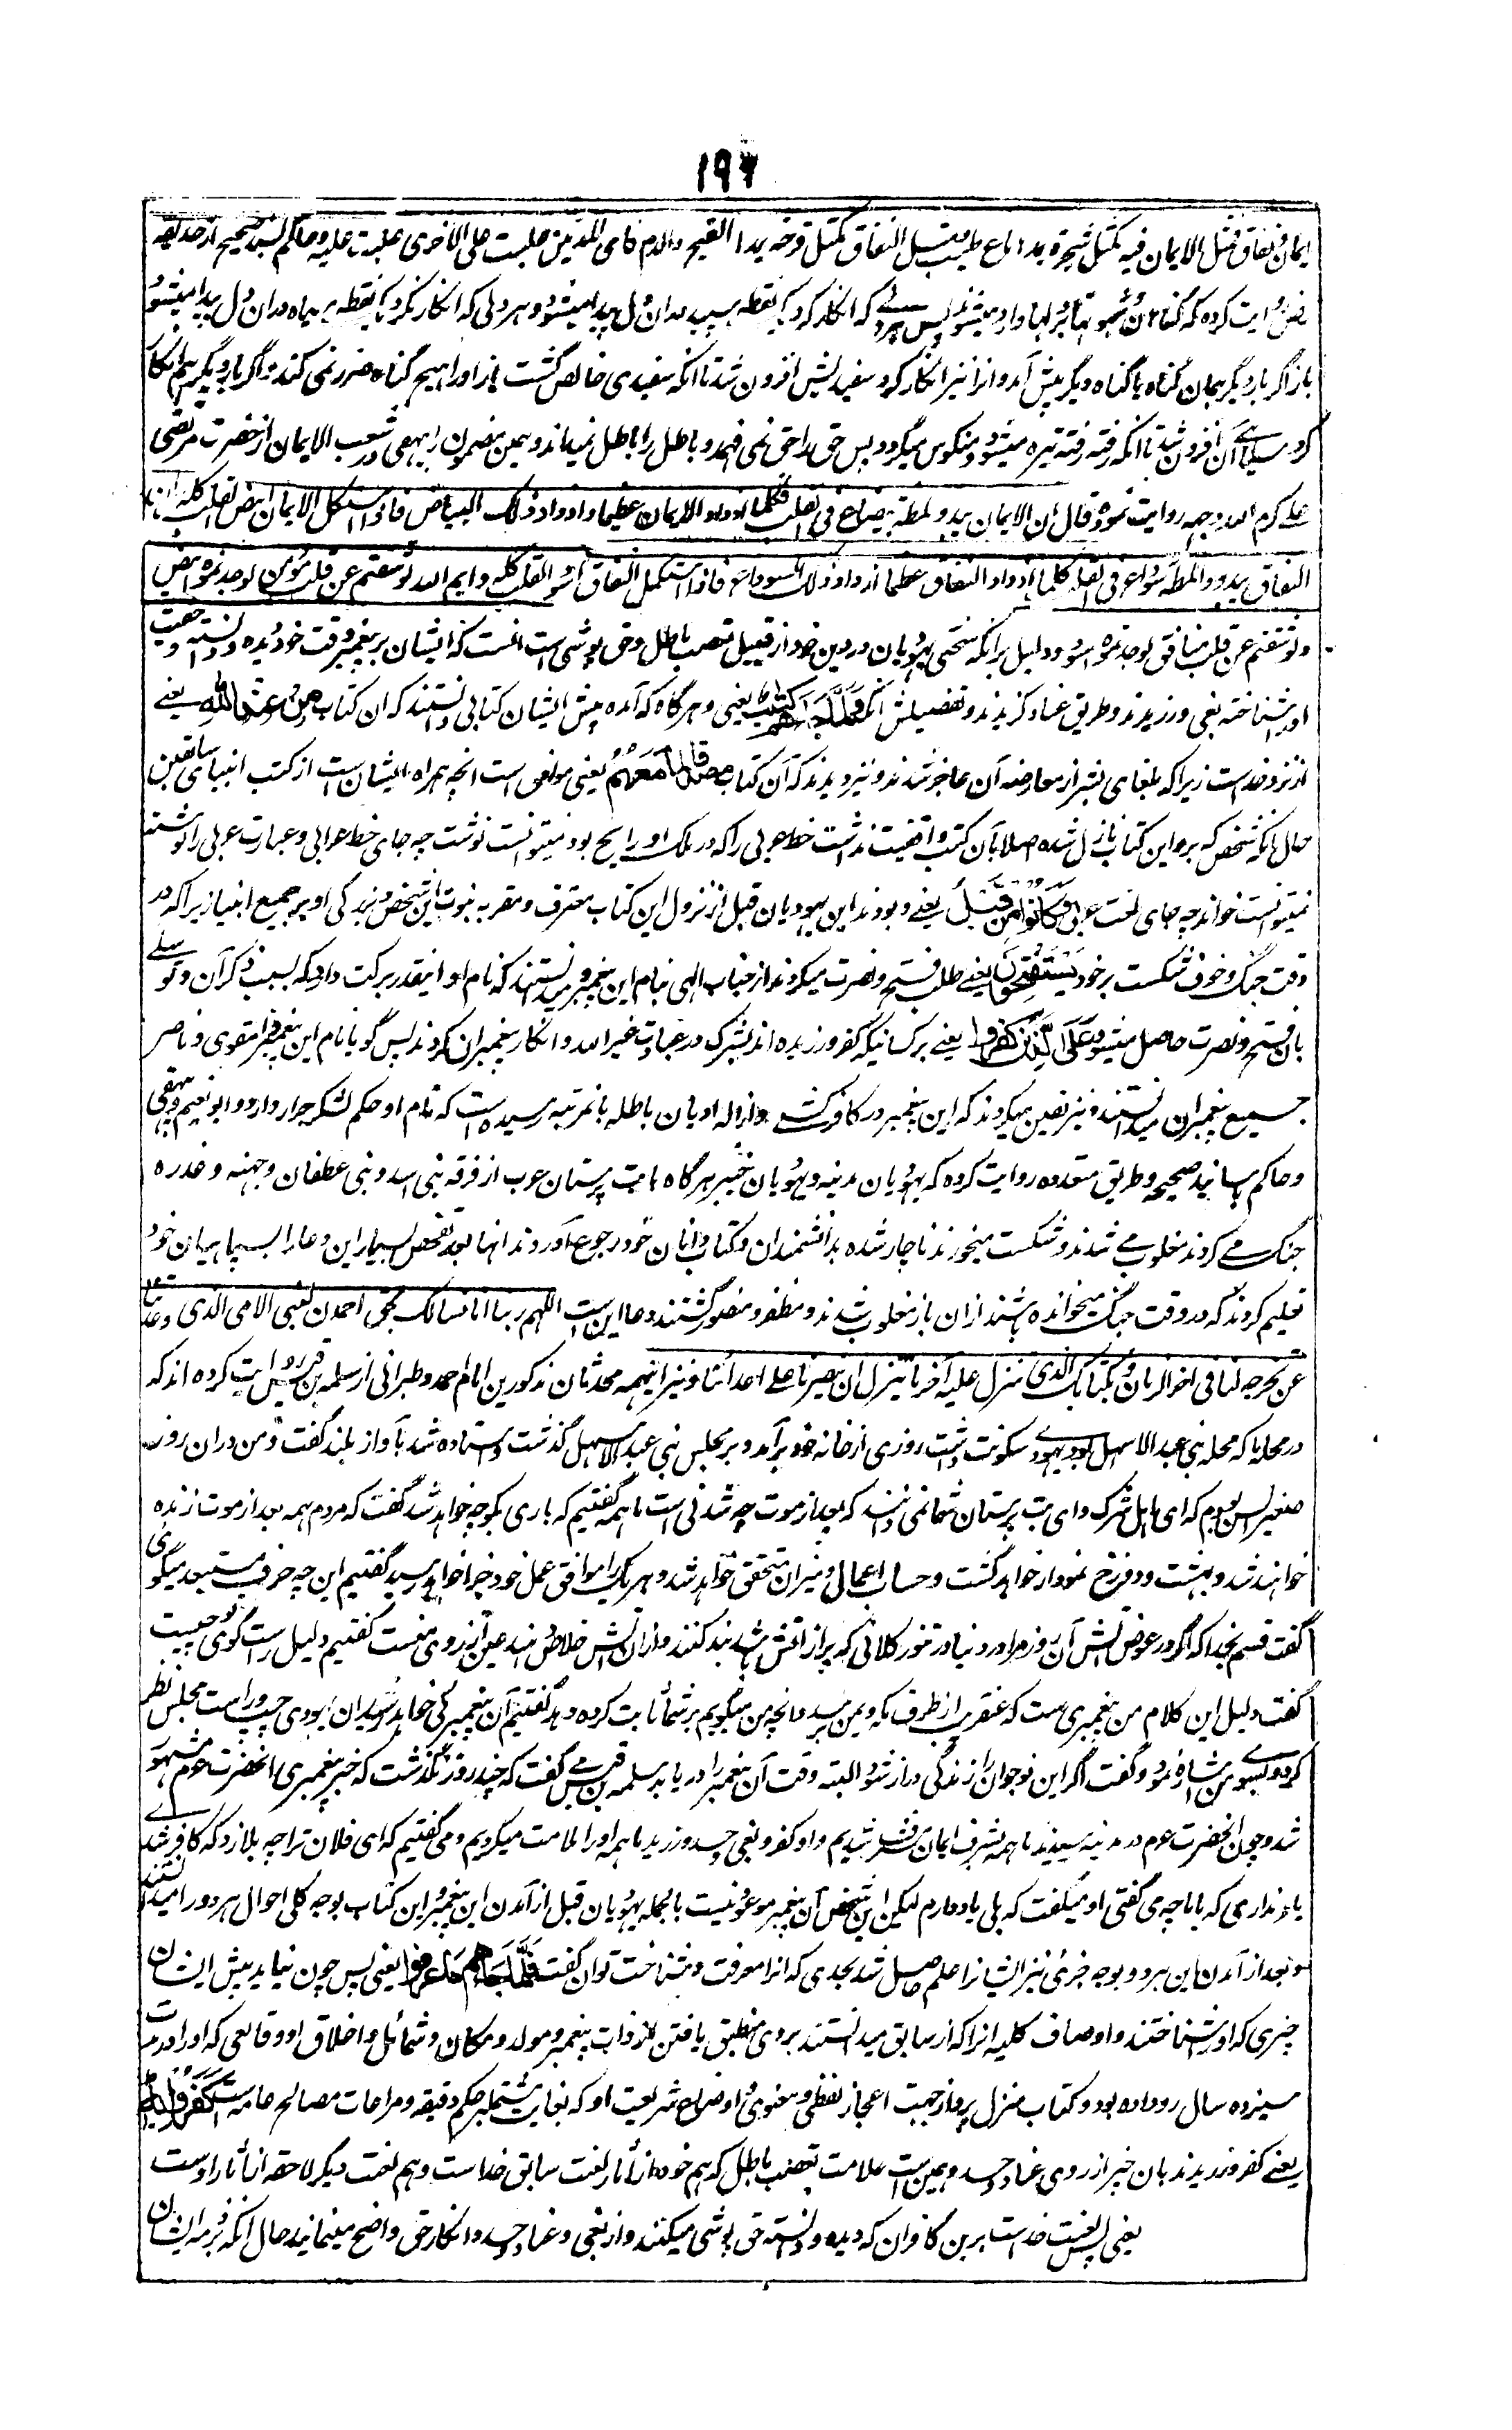 ۱۹۶
ایمان و نفاق فمثل الایمان فیه کمثل شجرة یمدها ماء طیب و مثل النفاق کمثل قرحة یمدها القیح والدم فای المدتین غلبت علی الاخری غلبت علیه و حاکم بسند صحیح از حذیفه
روایت کرده که گناهان و شبهتها بر دلها وارد میشود پس هر دلی که انکار کرد نقطه سپید در ان دل پیدا میشود و هر دلی که انکار نکرد نقطه سیاه در ان دل پیدا میشود
باز اگر بار دیگر همان گناه یا گناه دیگر پیش آمد و انرا نیز انکار کرد سفیدیش افزون شد تا انکه سفیدی خالص گشت باز او را هیچ گناه ضرر نمی کند و اگر بار دیگر هم انکار
کرد سیاهی آن افزون شد تا انکه رفته رفته تیره میشود و منکوس میگردد پس حق را حق نمی فهمد و باطل را باطل نمیداند و همین مضمون را بیهقی در شعب الایمان از حضرت مرتضی
علی کرم الله وجهه روایت نموده قال ان الایمان یبدو لمظة بیضاء فی القلب فکلما ازداد الایمان عظما ازداد ذلک البیاض فاذا استکمل الایمان ابیض القلب کله وان
النفاق یبدو لمظة سوداء فی القلب کلما ازداد النفاق عظما ازداد ذلک السواد فاذا استکمل النفاق اسود القلب کله و ایم الله لو شققتم عن قلب مومن لوجدتموه ابیض
ولو شققتم عن قلب منافق لوجدتموه اسود و دلیل بر انکه سختی یهودیان در دین خود از قبیل تعصب باطل و حق پوشی است انست که ایشان بر پیغمبر وقت خود دیده و دانسته و حقیت
او را شناخته بغی ورزیدند و طریق عناد گزیدند و تفصیلش انکه وَلَمَّا جَاءَهُمْ كِتَٰبٌ یعنی و هرگاه که آمد پیش ایشان کتابی دانستند که ان کتاب مِنْ عِنْدِ اللهِ یعنی
از نزد خداست زیرا که بلغای بشر از معارضه آن عاجز شدند و نیز دیدند که آن کتاب مُصَدِّقٌ لِّمَا مَعَهُمْ یعنی موافق است انچه همراه ایشان است از کتب انبیای سابقین
حال انکه شخصی که برو این کتاب نازل شده اصلا بآن کتب واقفیت نداشت خط عربی را که در ملک او رایج بود نمیتوانست نوشت چه جای خط عبرانی و عبارت عربی را نوشته
نمیتوانست خواند چه جای لغت عبری وَكَانُوا مِنْ قَبْلُ یعنی و بودند این یهودیان قبل از نزول این کتاب معترف و مقر به نبوت این شخص و بزرگی او بر جمیع انبیا زیرا که در
وقت جنگ و خوف شکست بر خود يَسْتَفْتِحُونَ یعنی طلب فتح و نصرت میکردند از جناب الهی بنام این پیغمبر و میدانستند که نام او اینقدر برکت دارد که بسبب ذکر آن و توسل
بان فتح و نصرت حاصل میشود عَلَى الَّذِينَ كَفَرُوا یعنی بر کسانیکه کفر ورزیده اند بشرک در عبادت غیر الله و انکار پیغمبران کردند پس گویا نام این پیغمبر را مقوی و ناصر
جمیع پیغمبران میدانستند و نیز یقین میکردند که این پیغمبر در کافر کشی و ازاله ادیان باطله بانمرتبه رسیده است که نام او حکم لشکر جرار دارد و ابو نعیم و بیهقی
و حاکم باسانید صحیحه و طریق متعدده روایت کرده که یهودیان مدینه و یهودیان خیبر هرگاه با بت پرستان عرب از فرقه بنی اسد و بنی غطفان و جهنه و عذره
جنگ می کردند مغلوب می شدند و شکست میخوردند ناچار شده بدانشمندان و کتاب دانان خود رجوع آوردند انها بعد تفحص بسیار این دعا را بسپاهیان خود
تعلیم کردند که در وقت جنگ میخوانده باشند ازان باز مغلوب نشدند و مظفر و منصور گشتند دعا این است اللهم ربنا انا نسالک بحق احمد ن النبی الامی الذی وعدتنا
ان تخرجه لنا فی اخر الزمان و بکتابک الذی تنزل علیه آخر ما ینزل ان تنصرنا علی اعدائنا و نیز اینهمه محدثان مذکورین و امام احمد و طبرانی از سلمه بن قیس روایت کرده اند که
در محله ما که محله بنی عبد الاسهل بود یهودی سکونت داشت روزی از خانه خود برآمد و بر مجلس بنی عبد الاسهل گذشت و استاده شد بآواز بلند گفت و من دران روز
صغیر السن بودم که ای اهل شرک و ای بت پرستان شما نمی دانند که بعد از موت چه شدنی است ما همه گفتیم که باری بگو چه خواهد شد گفت که مردم همه بعد از موت زنده
خواهند شد و بهشت و دوزخ نمودار خواهد گشت و حساب اعمال و میزان متحقق خواهد شد و هر یک را موافق عمل خود جزا خواهد رسید گفتیم این چه حرف مستبعد میگوی
گفت قسم بخدا که اگر در عوض آتش آن روز مرا در دنیا در تنور کلانی که پر از اتش باشد بند کنند و ازان آتش خلاص شوم عین آرزوی منست گفتیم دلیل راست گوی تو چیست
گفت دلیل این کلام من پیغمبری است که عنقریب از طرف مکه و یمن برسد و انچه من میگویم بر شما ثابت کرده دهد گفتیم آن پیغمبر کی خواهد رسید ان یهودی چپ و راست مجلس نظر
کرد و بسوی من اشاره نمود و گفت اگر این نوجوان را زندگی دراز شود البته وقت آن پیغمبر را دریابد سلمه بن قیس می گفت که چند روز نگذشت که خبر پیغمبری انحضرت عم مشهور
شد و چون انحضرت عم در مدینه رسیدند ما همه بشرف ایمان مشرف شدیم و او کفر و بغی و حسد ورزید ما همه او را ملامت میکردیم و می گفتیم که ای فلان ترا چه بلا زد که کافر شدی
یاد نداری که با ما چه می گفتی او میگفت که بلی یاد دارم لیکن این شخص آن پیغمبر موعود نیست بالجمله یهودیان قبل از آمدن این پیغمبر و این کتاب بوجه کلی احوال هر دو را میدانستند
و بعد از آمدن این هر دو بوجه جزئی نیز ایشانرا علم حاصل شد بحدی که انرا معرفت و شناخت توان گفت فَلَمَّا جَاءَهُمْ مَا عَرَفُوا یعنی پس چون بیاید پیش ایشان
چیزی که او را شناختند و اوصاف کلیه انرا که از سابق میدانستند بروی منطبق یافتند از ذات پیغمبر و مولد و مکان و شمائل و اخلاق او وقائعی که او را در مدت
سیزده سال رو داده بود و کتاب منزل برو از جهت اعجاز لفظی و معنوی و اوضاع شریعت او که بغایت مشتمل بر حکم دقیقه و مراعات مصالح عامه است كَفَرُوا بِهِ
یعنی کفر ورزیدند بان خبر از روی عناد و حسد و همین است علامت تعصب باطل که هم خود از آثار لعنت سابق خداست و هم لعنت دیگر لاحقه از آثار اوست
یعنی پس لعنت خداست برین کافران که دیده و دانسته حق پوشی میکنند و از بغی و عناد و حسد و انکار حق واضح مینمایند حال انکه در زمره ایشان